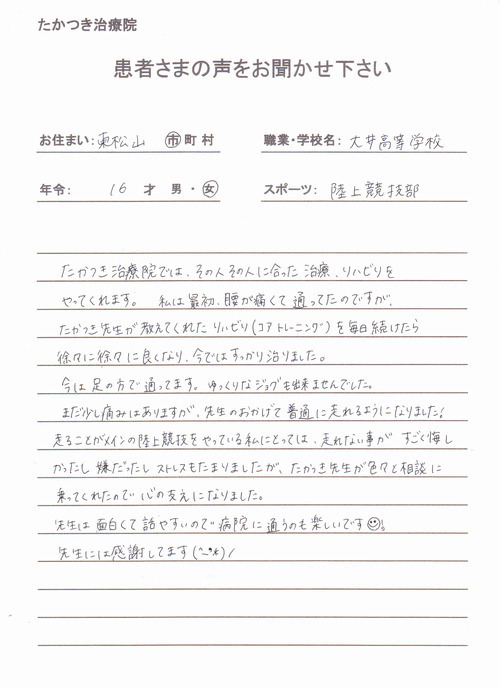 たかつき治療院
患者さまの声をお聞かせ下さい
お住まい: 東松山 市町村 職業・学校名: 大井高等学校
年令: 16 才 男・女 スポーツ: 陸上競技部
たかつき治療院では、その人その人に合った 治療、リハビリを
やってくれます。 私は最初、腰が痛くて 通ってたのですが、
たかつき先生が教えてくれた リハビリ(コアトレーニング)を毎日続けたら
徐々に徐々に良くなり、今ではすっかり治りました。
今は足の方で通ってます。ゆっくりなジョグも出来ませんでした。
まだ少し痛みはありますが、先生のおかげで普通に走れるようになりました!
走ることがメインの陸上競技をやっている私にとっては、走れない事が すごく悔し
かったし 嫌だったし ストレスもたまりましたが、たかつき先生が色々と相談に
乗ってくれたので 心の支えになりました。
先生は 面白くて 話やすいので 病院に通うのも楽しいです☺!
先生には感謝してます(^-^*)/